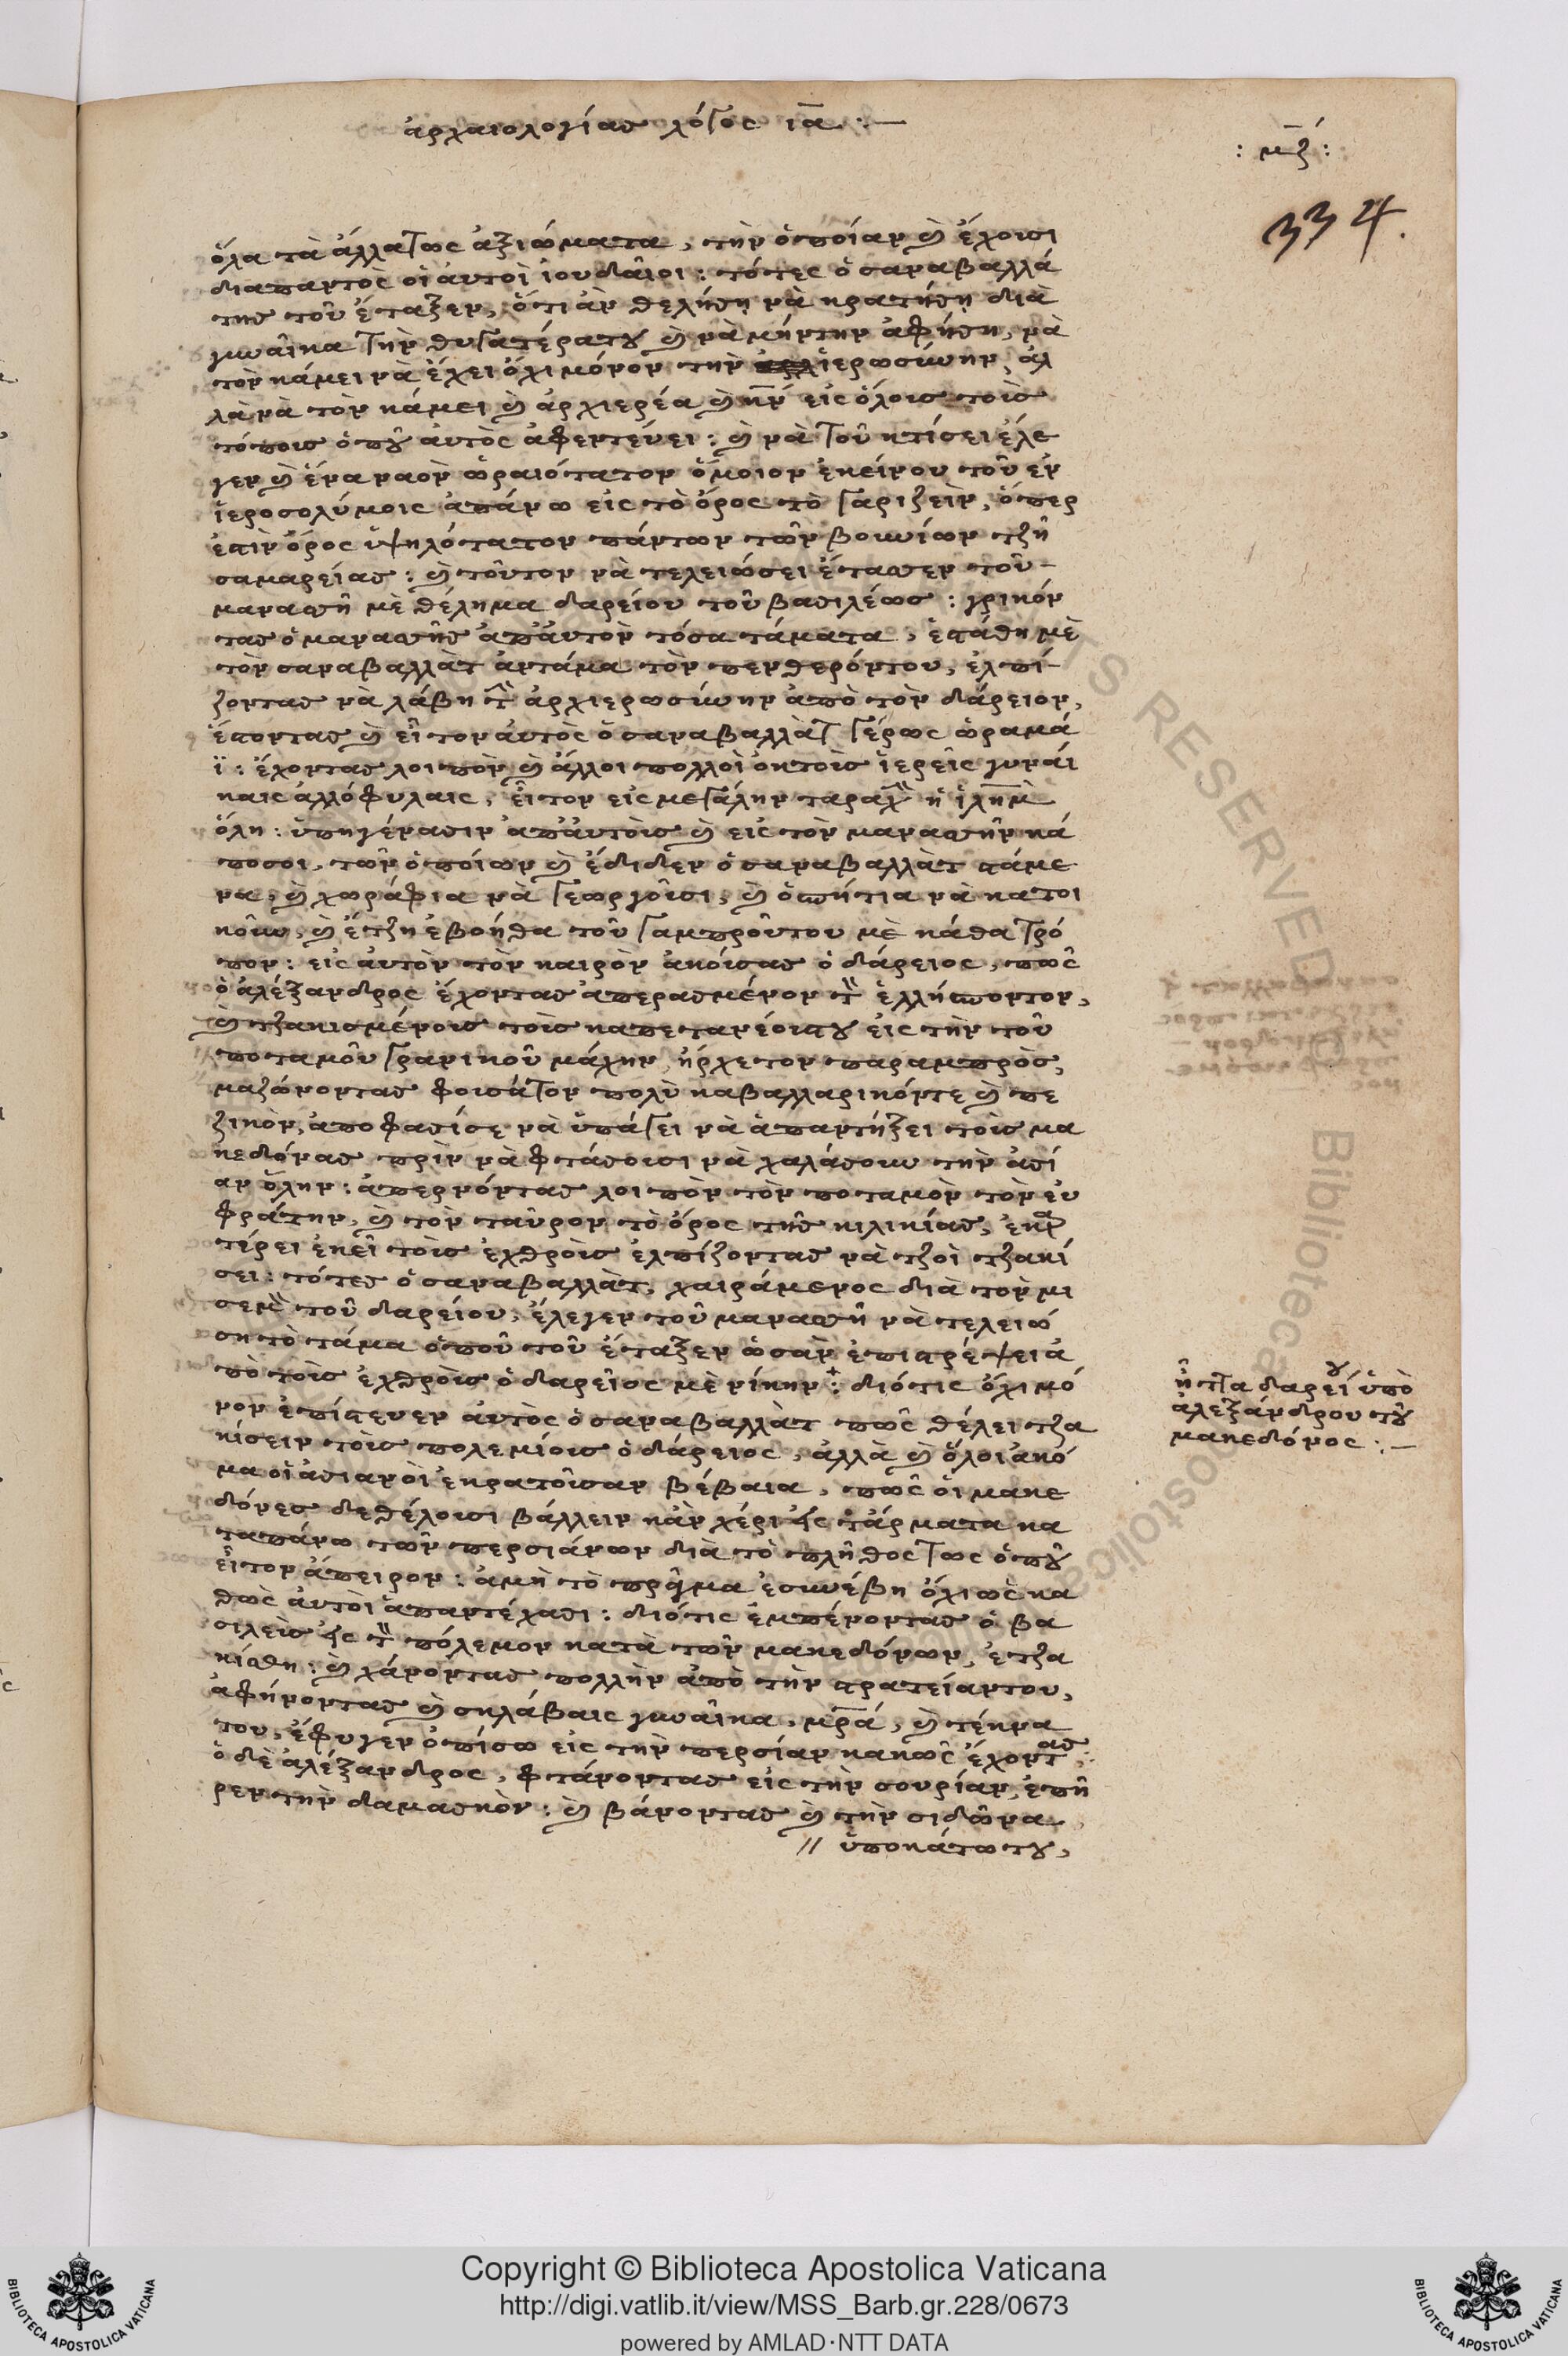 ἀρχαιολογίας λόγος ια :—
: μζ :
334.
ὅλα τὰ ἄλλα τως ἀξιώματα, τὴν ὁποίαν καὶ ἔχουσι
διαπαντὸς οἱ αὐτοὶ ἰουδαῖοι : τότες ὁ σαναβαλλά
της τοῦ ἔταξεν, ὅτι ἂν θελήση νὰ κρατήση διὰ
γυναῖκα τὴν θυγατέρα του καὶ νὰ μήν την ἀφήση, νὰ
τὸν κάμει νὰ ἔχει ὄχι μόνον τὴν ἱερωσύνην, ἀλ
λὰ νὰ τὸν κάμει καὶ ἀρχιερέα καὶ εἰς ὅλους τοὺς
τόπους ὁποῦ αὐτὸς ἀφεντεύει : καὶ νὰ τοῦ κτίσει ἔλε
γεν καὶ ἕνα ναὸν ὡραιότατον ὅμοιον ἐκείνου τοῦ ἐν
ἱεροσολύμοις ἀπάνω εἰς τὸ ὄρος τὸ γαριζεὶν, ὅπερ
ἐστὶν ὄρος ὑψηλότατον πάντων τῶν βουνίων τζῆ
σαμαρείας : καὶ τοῦτον νὰ τελειώσει ἔτασσεν τοῦ
μανασσῆ μὲ θέλημα δαρείου τοῦ βασιλέως : γρικόν
τας ὁ μανασσῆς ἀπ' αὐτὸν τόσα τάματα, ἐστάθη μὲ
τὸν σαναβαλλὰτ ἀντάμα τὸν πενθερόν του, ἐλπί
ζοντας νὰ λάβη τὴν ἀρχιερωσύνην ἀπὸ τὸν δάρειον,
ἔστοντας καὶ εἶτον αὐτὸς ὁ σαναβαλλὰτ γέρως ὡραμά
ϊ : ἔχοντας λοιπὸν καὶ ἄλλοι πολλοὶ ἐκ τοὺς ἱερεῖς γυναί
καις ἀλλόφυλαις, εἶτον εἰς μεγάλην ταραχὴν ἡ ἱλημ
ὅλη : ὑπηγένασιν ἀπ' αὐτοὺς καὶ εἰς τὸν μανασσῆν κά
ποσοι, τῶν ὁποίων καὶ ἔδιδεν ὁ σαναβαλλὰτ στάμε
να, καὶ χωράφια νὰ γεωργοῦσι, καὶ ὁσπήτια νὰ κατοι
κοῦν, καὶ ἔτζη ἐβοήθα τοῦ γαμπροῦ του μὲ κάθα τρό
πον : εἰς αὐτὸν τὸν καιρὸν ἀκούσας ὁ δάρειος, πῶς
ὁ ἀλέξανδρος ἔχοντας ἀπερασμένον τὸν ἑλλήσποντον,
καὶ τζακισμένους τοὺς καπετανέους του εἰς τὴν τοῦ
ποταμοῦ γρανικοῦ μάχην, ἤρχετον παραμπρὸς,
μαζώνοντας φουσάτον πολὺ καβαλλαρικόντε καὶ πε
ζικὸν, ἀποφασίσε νὰ ὑπάγει νὰ ἀπαντήξει τοὺς μα
κεδόνας πρὶν νὰ φτάσουσι νὰ χαλάσουν τὴν ἀσί
αν ὅλην : ἀπερνόντας λοιπὸν τὸν ποταμὸν τὸν εὐ
φράτην, καὶ τὸν ταῦρον τὸ ὄρος τῆς κιλικίας, ἐκαρ
τέρει ἐκεῖ τοὺς ἐχθροὺς ἐλπίζοντας νὰ τζοὶ τζακί
σει : τότες ὁ σαναβαλλὰτ, χαιράμενος διὰ τὸν μι
σεμὸν τοῦ δαρείου, ἔλεγεν τοῦ μανασσῆ νὰ τελειώ
ση τὸ τάμα ὁποῦ τοῦ ἔταξεν ὡσὰν ἐπιστρέψει ἀ
πὸ τοὺς ἐχθροὺς ὁ δαρεῖος μὲ νίκην + : διότις ὄχι μό
νον ἐπίστευεν αὐτὸς ὁ σαναβαλλὰτ πῶς θέλει τζα
κίσειν τοὺς πολεμίους ὁ δάρειος, ἀλλὰ καὶ ὅλοι ἀκό
μα οἱ ἀσιανοὶ ἐκρατοῦσαν βέβαια, πῶς οἱ μακε
δόνες δεθέλουσι βάλλειν κἂν χέρι εἰς τ' ἄρματα κα
ταπάνω τῶν περσιάνων διὰ τὸ πλῆθος τως ὁποῦ
εἶτον ἄπειρον : ἀμὴ τὸ πρᾶγμα ἐσυνέβη ὄχι ὡς κα
θὼς αὐτοὶ ἀπαντέχασι : διότις ἐμπένοντας ὁ βα
σιλεὺς εἰς τὸν πόλεμον κατὰ τῶν μακεδόνων, ἐτζα
κίσθη : καὶ χάνοντας πολλὴν ἀπὸ τὴν στρατείαν του,
ἀφήνοντας καὶ σκλάβαις γυναῖκα, μρα, καὶ τέκνα
του, ἔφυγεν ὀπίσω εἰς τὴν περσίαν κακῶς ἔχοντας :
ὁ δὲ ἀλέξανδρος, φτάνοντας εἰς τὴν συρίαν, ἐπῆ
ρεν τὴν δαμασκὸν : καὶ βάνοντας καὶ τὴν σιδῶνα
// ὑποκάτω του,
ἧττα δαρείου ὑπὸ
ἀλεξάνδρου τοῦ
μακεδόνος :—
Copyright © Biblioteca Apostolica Vaticana
http://digi.vatlib.it/view/MSS_Barb.gr.228/0673
powered by AMLAD·NTT DATA
BIBLIOTECA APOSTOLICA VATICANA
BIBLIOTECA APOSTOLICA VATICANA